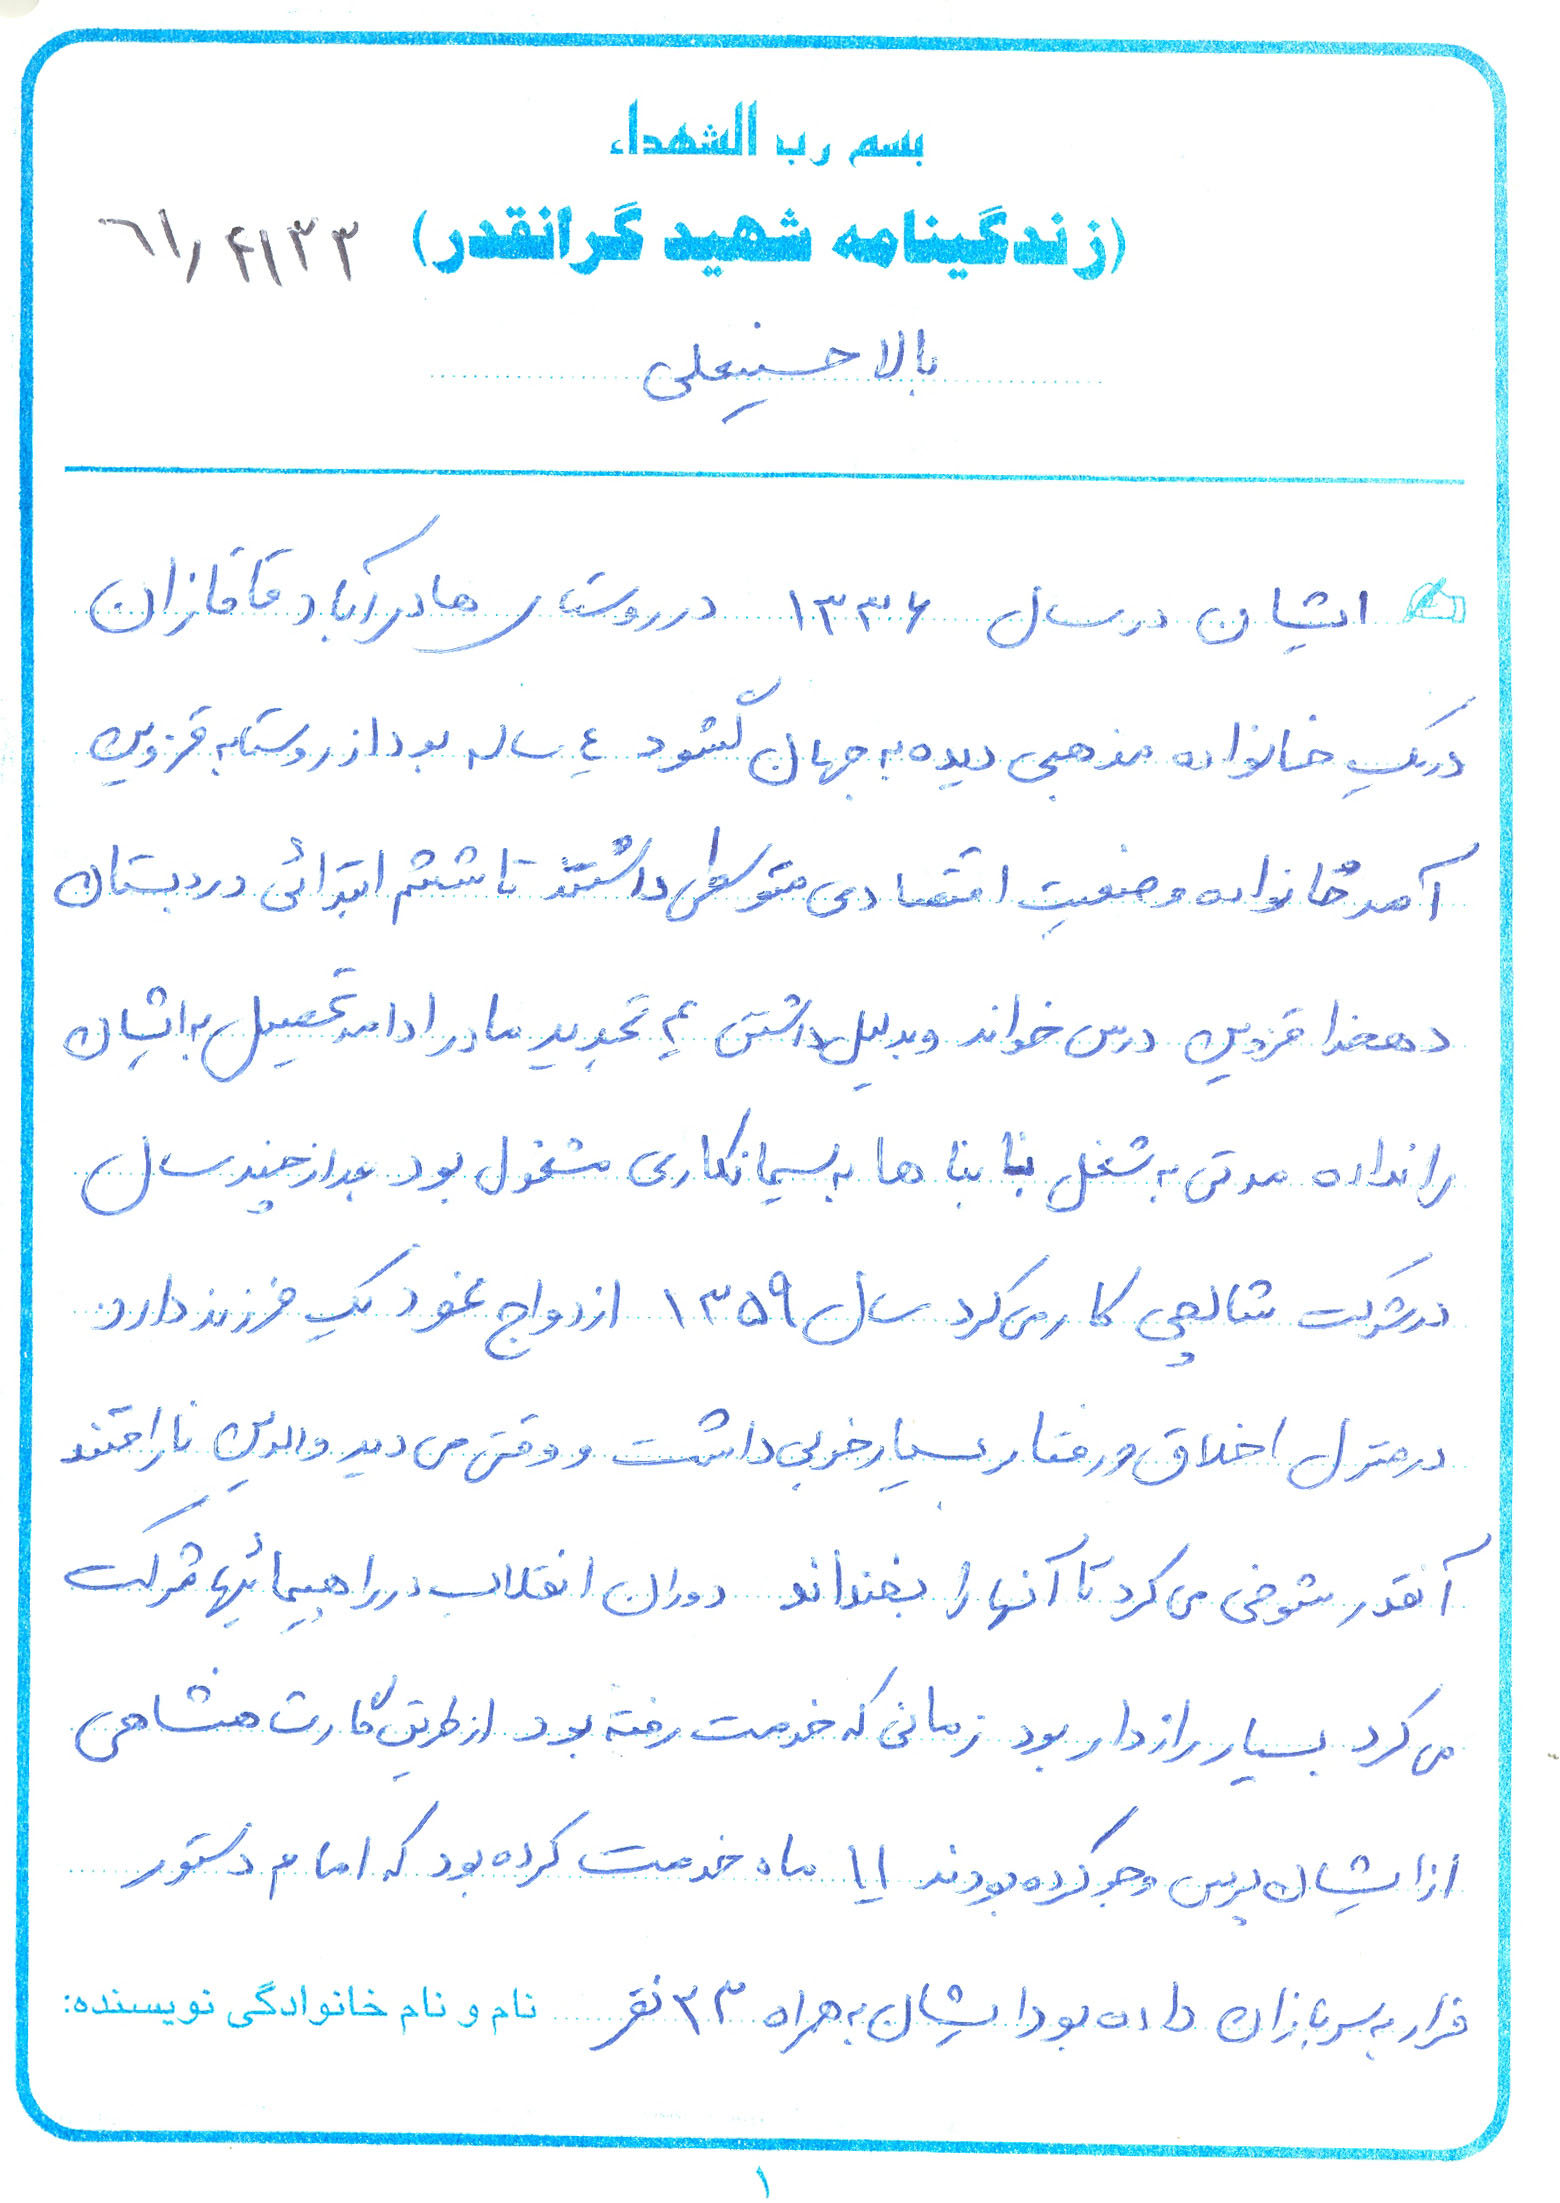 بسم رب الشهداء
(زندگینامه شهید گرانقدر)
بالا حسینعلی
ایشان در سال ۱۳۳۶ در روستای قاقازان
در یک خانواده مذهبی دیده به جهان گشود ٤ ساله بود از روستا به قزوین
آمد خانواده وضعیت اقتصادی متوسطی داشتند تا ششم ابتدائی در دبستان
دهخدا قزوین درس خواند و بدلیل داشتن تجدید مادر ادامه تحصیل به ایشان
را نداده مدتی به شغل بنا ها به سیمانکاری مشغول بود بعد از چند سال
در شرکت کار می کرد سال ۱۳۵۹ ازدواج نمود یک فرزند دارد.
در منزل اخلاق و رفتار بسیار خوبی داشت و وقتی می دید والدین ناراحتند
آنقدر شوخی می کرد تا آنها را بخنداند دوران انقلاب در راهپیمائیها شرکت
می کرد بسیار رازدار بود زمانی که خدمت رفته بود از طریق گارت هنشاهی
از ایشان پرس وجو کرده بودند ۱۱ ماه خدمت کرده بود که امام دستور
فرار به سربازان داده بود ایشان به همراه ۳۳ نفر
نام و نام خانوادگی نویسنده:
۱